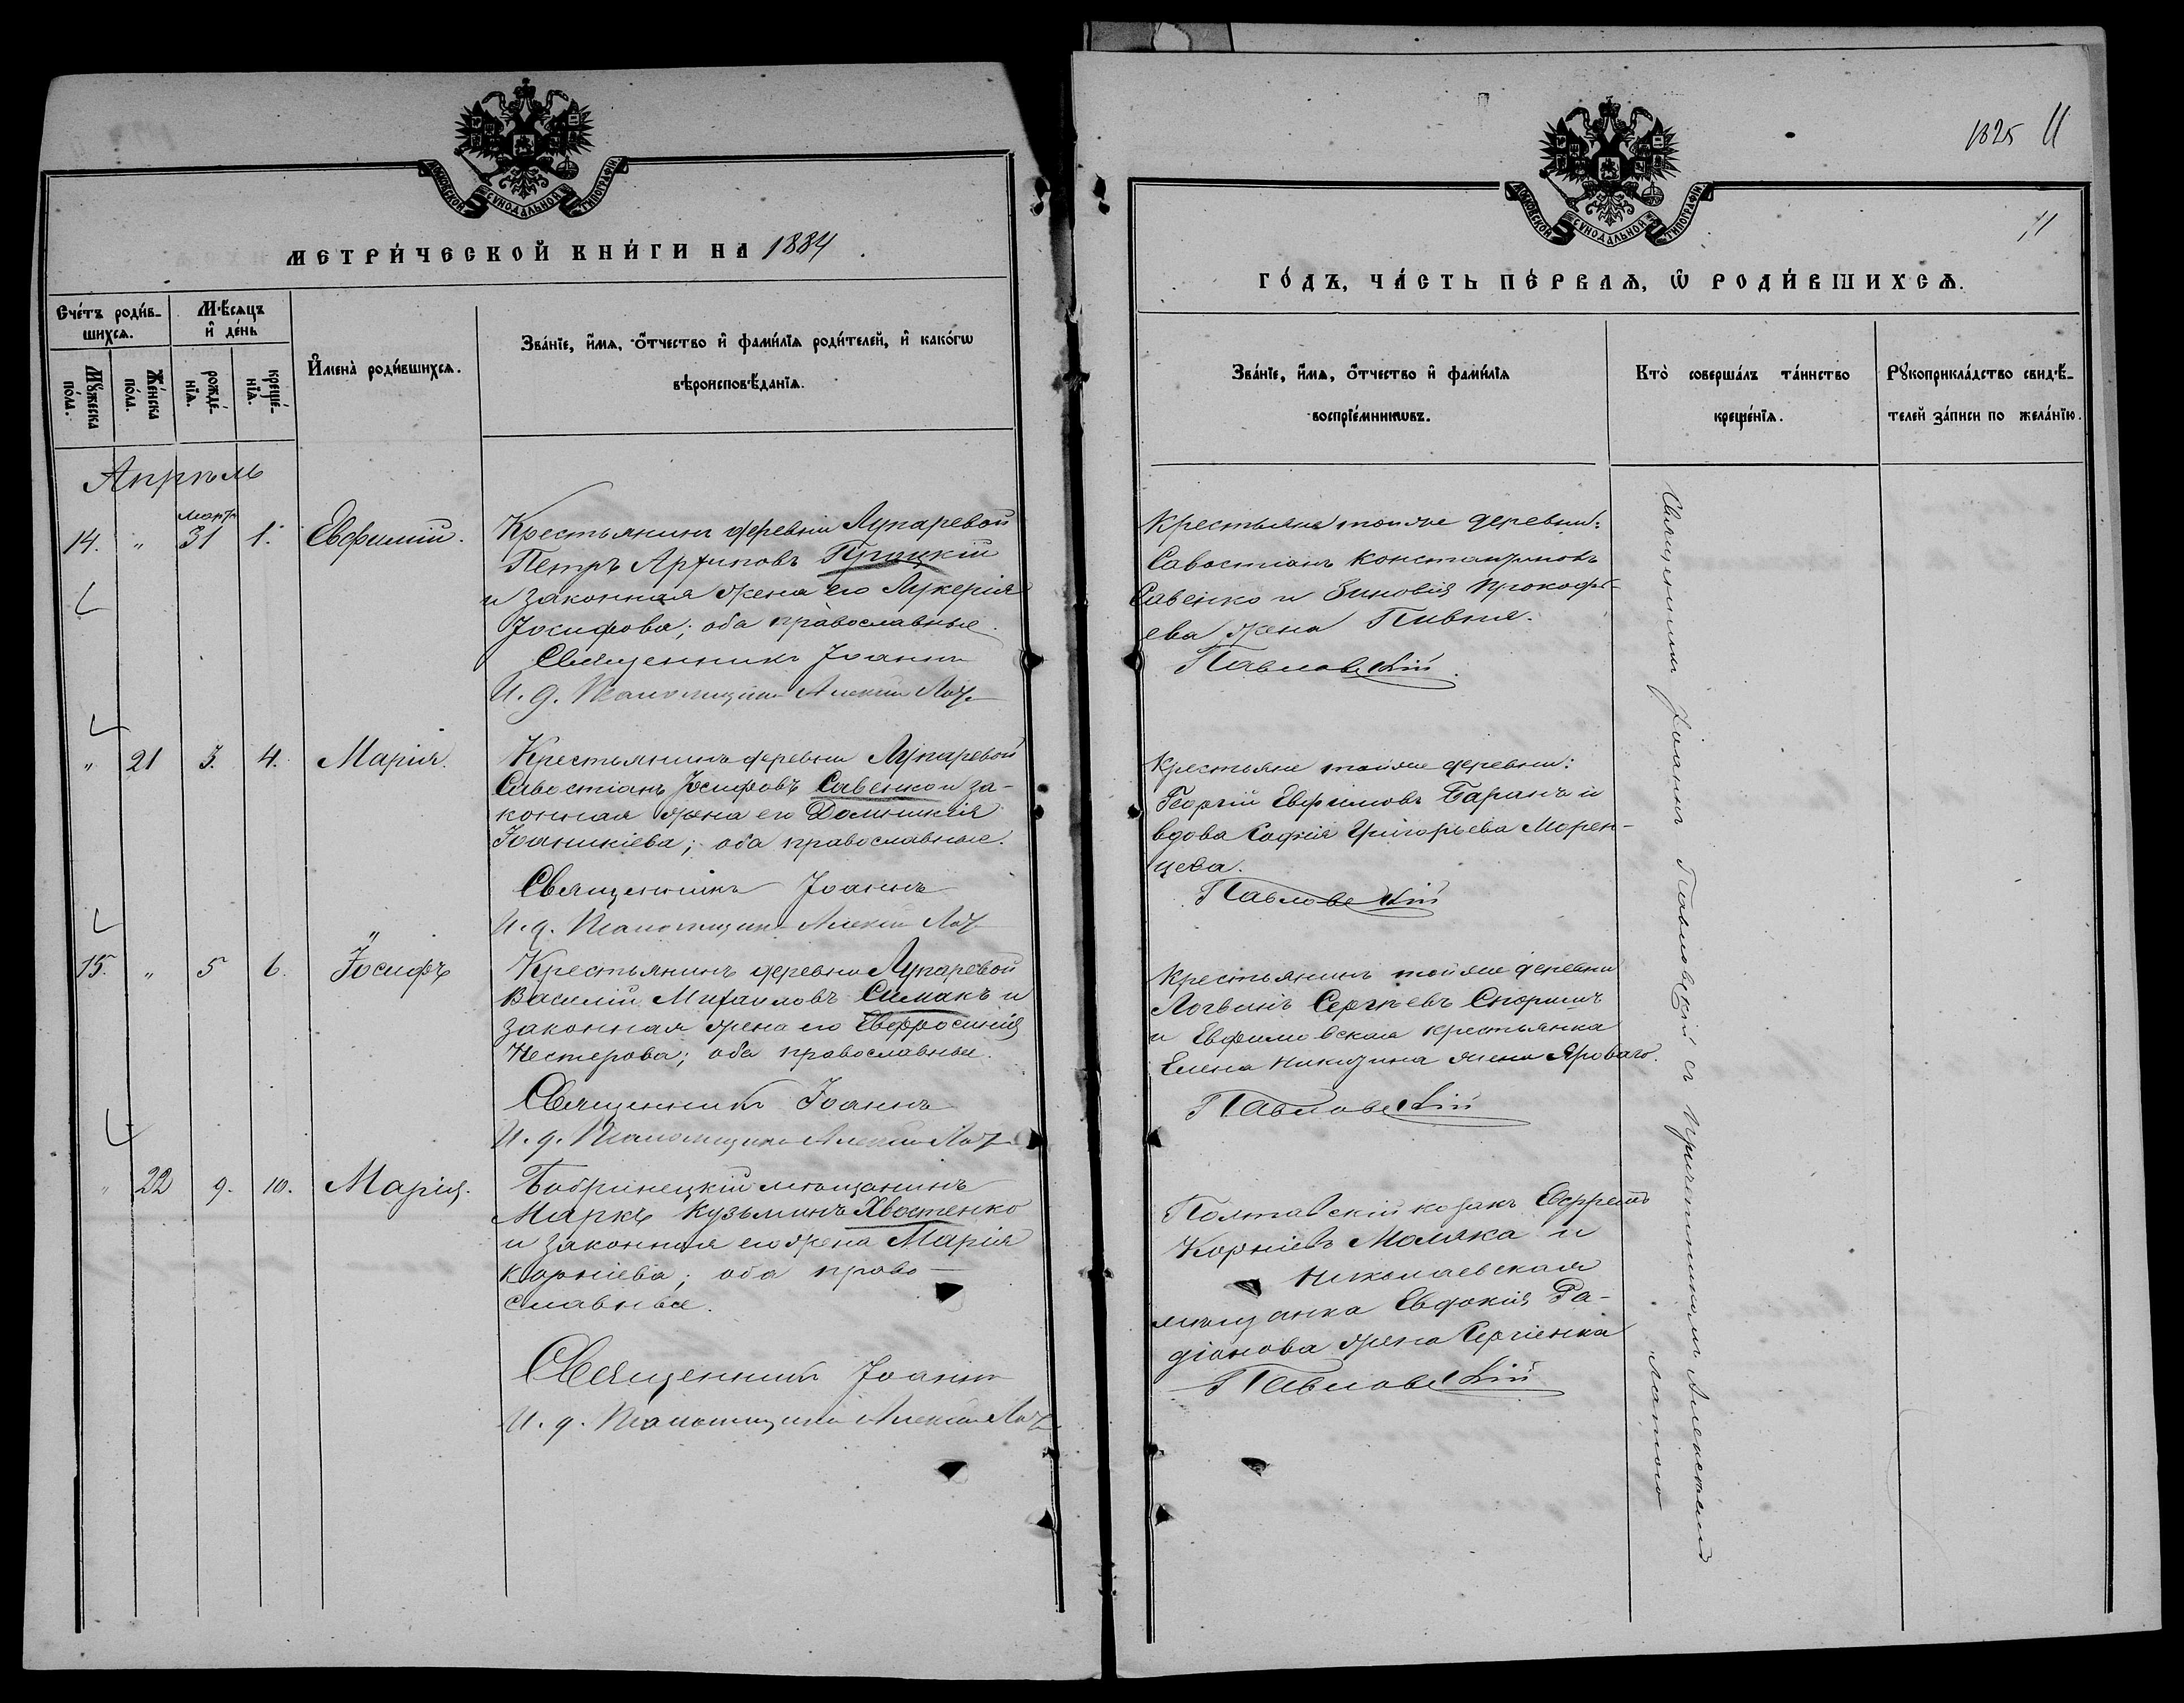 МОСКОВСКОЙ СѴНОДАЛЬНОЙ ТИПОГРАФІИ
МЕТРИ́ЧЕСКОЙ КНИ́ГИ НА 1884
Сче́тъ роди́в-
шихсѧ.
Мѣ́сѧцъ
и҆ де́нь
Мꙋ́жеска
по́ла.
Же́нска
по́ла.
рожде́-
нїѧ.
креще́-
нїѧ.
И҆мена̀ роди́вшихсѧ.
Зва́нїе, и҆́мѧ, ѻ҆́тчество и҆ фами́лїѧ роди́телей, и҆ како́гѡ
вѣроисповѣ́данїѧ.
Апрѣль
14. " март 31 1. Евфимій.
Крестьянинъ деревни Лупаревой
Петръ Архиповъ
и законная жена его Лукерія
Іосифова; оба православные.
Священникъ Іоаннъ
И. д. Псаломщика Алексій
" 21 3. 4. Марія.
Крестьянинъ деревни Лупаревой
Савостіанъ Іосифовъ Савенко и за-
конная жена его Домникія
Іоаникіева; оба православные.
Священникъ Іоаннъ
И. д. Псаломщика Алексій
15. " 5 6. Іосифъ
Крестьянинъ деревни Лупаревой
Василій Михаиловъ Симакъ и
законная жена его Евфросинія
Нестерова; оба православные.
Священникъ Іоаннъ
И. д. Псаломщика Алексій
" 22 9. 10. Марія.
Бобринецкій мѣщанинъ
Маркъ Кузьминъ Хвостенко
и законная его жена Марія
Корніева; оба право-
славные.
Священникъ Іоаннъ
И. д. Псаломщика Алексій
1825 11
МОСКОВСКОЙ СѴНОДАЛЬНОЙ ТИПОГРАФІИ
11
ГО́ДЪ, ЧА́СТЬ ПЕ́РВАѦ, Ѡ҆ РОДИ́ВШИХСѦ.
Зва́нїе, и҆́мѧ, ѻ҆́тчество и҆ фами́лїѧ
воспрїе́мникѡвъ.
Кто̀ соверша́лъ та́инство
креще́нїѧ.
Рꙋкоприкла́дство свидѣ́-
телей за́писи по жела́нїю.
Крестьяне тойже деревни:
Савостіанъ Константиновъ
Савенко и Зиновія Прокофь-
ева жена Пивня.
Павловскій.
Крестьяне тойже деревни:
Георгій Евфимовъ Баранъ и
вдова Софія Григорьева Морен-
цева.
Павловскій
Крестьянинъ тойже деревни
Логвинъ Сергѣевъ Споришъ
и Евфимовская крестьянка
Елена Никитина жена Яроваго.
Павловскій
Полтавскій козакъ Ефремъ
Корніевъ Моляка и
Николаевская
мѣщанка Евдокія Ра-
діонова жена Сергіенка
Павловскій
Священникъ Іоаннъ Павловскій съ причетникомъ Алексѣемъ